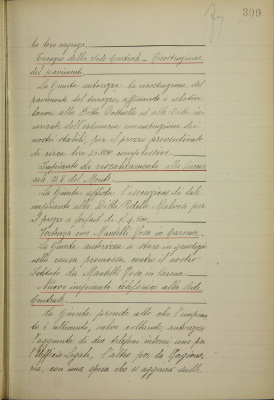 309
la loro urgenza.
Garage della Sede Centrale - Ricostruzione
del pavimento.
La Giunta autorizza la ricostruzione del
pavimento del garage, affidando i relativi
lavori alla Ditta
ed alle Ditte in-
caricate dell'ordinaria manutenzione dei
nostri stabili, per il prezzo preventivato
di circa
complessive.
Impianto di riscaldamento alla Succur-
sale N. 8 del Monte.
La Giunta affida l'esecuzione di tale
impianto alla Ditta
per
il prezzo a forfait di
Vertenza con Mantelli Rosa in
La Giunta autorizza a stare in giudizio
nella causa promossa contro il nostro
Istituto da Mantelli Rosa in
Nuovo impianto telefonico alla Sede
Centrale.
La Giunta, preso atto che l'impian-
to è ultimato, salvo collaudo, autorizza
l'aggiunta di due telefoni interni uno per
l'Ufficio Legale, l'altro per la Ragione-
ria, con una spesa che si aggira sulle